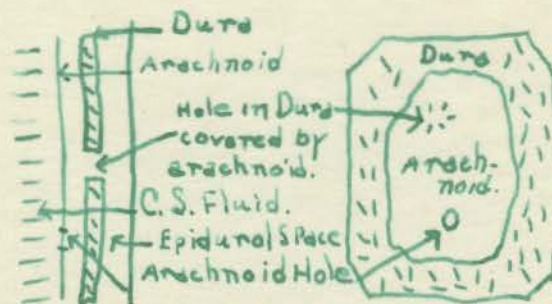 Dura
Arachnoid
Hole in Dura
covered by
arachnoid.
C.S. Fluid.
Epidural Space
Arachnoid Hole
Dura
Arach-
noid.